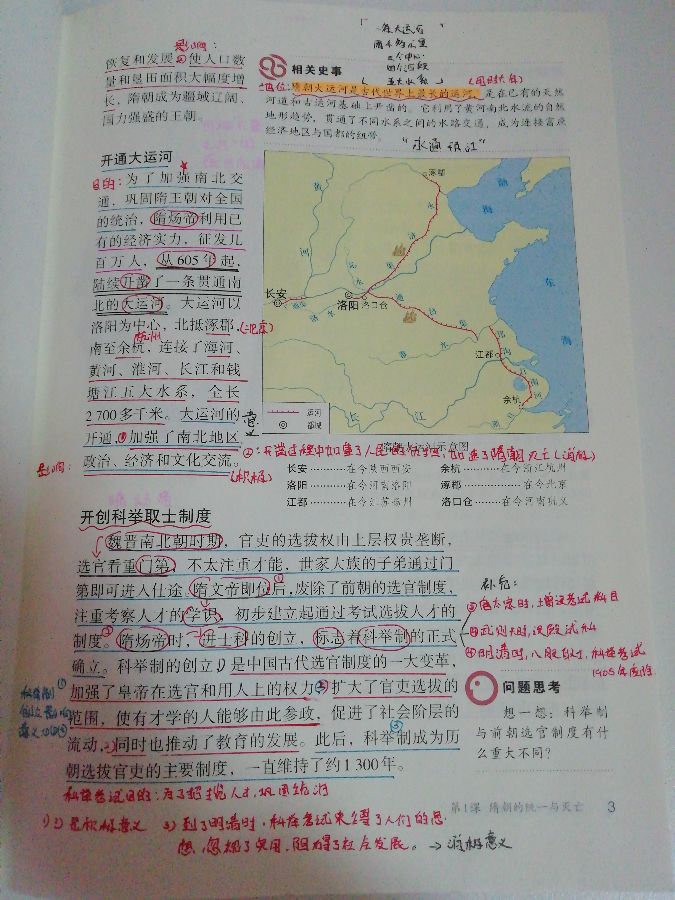 影响：
恢复和发展，使人口数
量和垦田面积大幅度增
长，隋朝成为疆域辽阔、
国力强盛的王朝。
开通大运河
目的：为了加强南北交
通，巩固隋王朝对全国
的统治，隋炀帝利用已
有的经济实力，征发几
百万人，从605年起，
陆续开凿了一条贯通南
北的大运河。大运河以
洛阳为中心，北抵涿郡，(北京)
杭州
南至余杭，连接了海河、
黄河、淮河、长江和钱
塘江五大水系，全长
2 700多千米。大运河的
意义
开通，①加强了南北地区
影响：政治、经济和文化交流。
(积极)
隋大运河
三个中心
四个河段
五大水系
相关史事
地位：隋朝大运河是古代世界上最长的运河，是在已有的天然
河道和古运河基础上开凿的。它利用了黄河南北水流的自然
地形趋势，贯通了不同水系之间的水路交通，成为连接富庶
经济地区与国都的纽带。
涿郡
渤
海
黄
河
永
济
渠
长安
洛阳
洛口仓
通
济
渠
淮
水
东
海
江都
江
南
河
余杭
长
江
运河
都城
隋朝大运河示意图
②：开凿过程中加重了人民的负担，加速了隋朝灭亡(消极)
长安…………在今陕西西安
余杭…………在今浙江杭州
洛阳…………在今河南洛阳
涿郡…………在今北京
江都…………在今江苏扬州
洛口仓………在今河南巩义
开创科举取士制度
魏晋南北朝时期，官吏的选拔权由上层权贵垄断，
选官看重门第，不太注重才能，世家大族的子弟通过门
第即可进入仕途。隋文帝即位后，废除了前朝的选官制度，
注重考察人才的学识，初步建立起通过考试选拔人才的
制度。隋炀帝时，进士科的创立，标志着科举制的正式
确立。科举制的创立1)是中国古代选官制度的一大变革，
加强了皇帝在选官和用人上的权力，扩大了官吏选拔的
范围，使有才学的人能够由此参政，促进了社会阶层的
流动，2)同时也推动了教育的发展。此后，科举制成为历
朝选拔官吏的主要制度，一直维持了约1 300年。
补充：
③唐太宗时，增设考试科目
④武则天时，
⑤明清时，八股取士，科举考试
1905年废除
问题思考
想一想：科举制
与前朝选官制度有什
么重大不同？
科举考试目的：为了
人才，巩固统治
1)2)是积极意义
3)到了明清时，科举考试束缚了人们的思
想，忽视了实用，阻碍了社会发展。→消极意义
第1课 隋朝的统一与灭亡
3